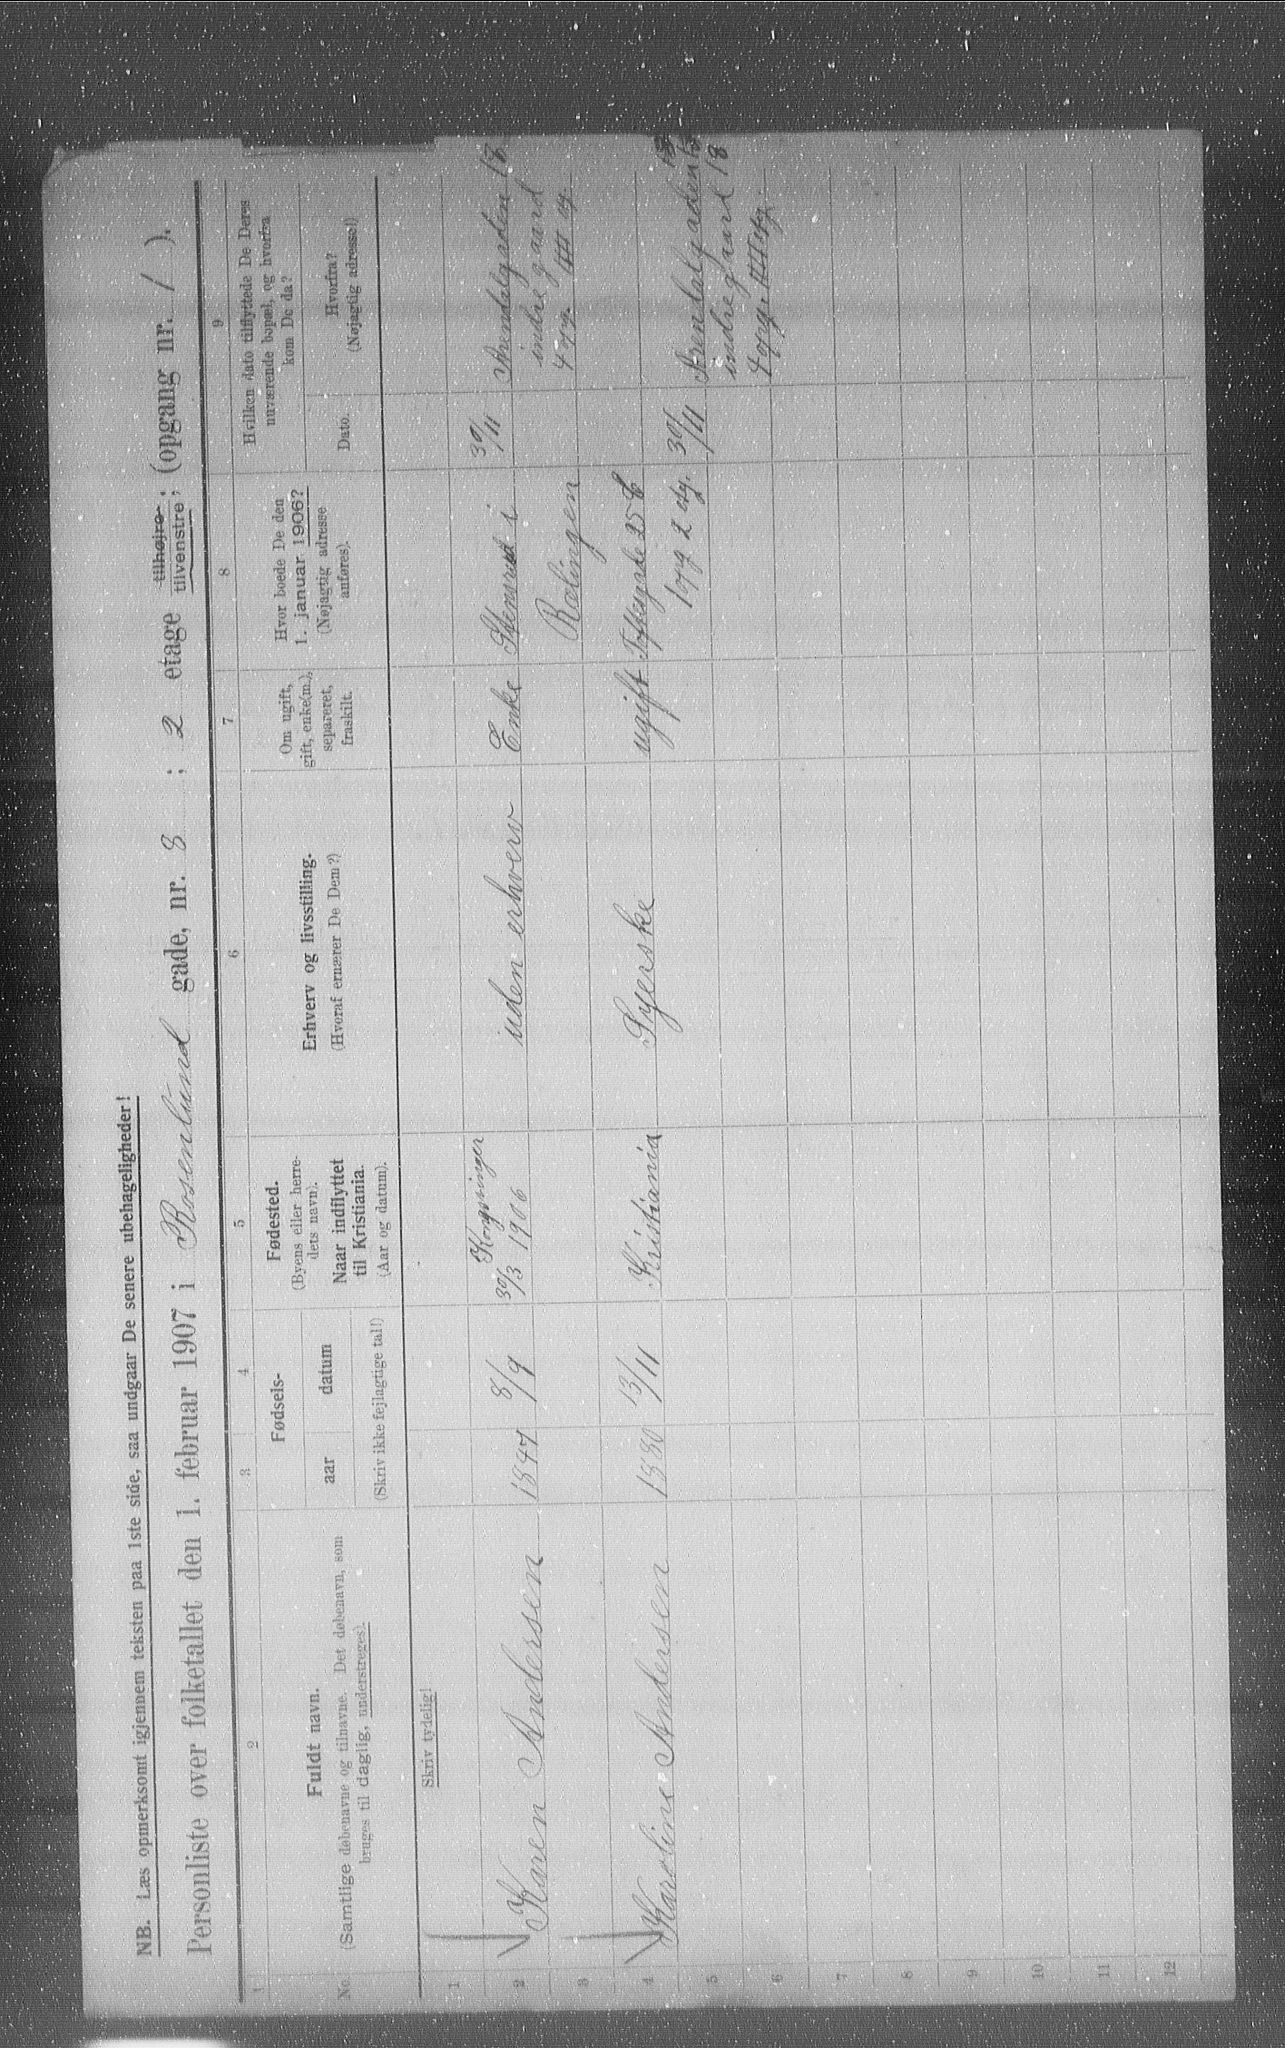 NB. Læs opmerksomt igjennem teksten paa 1ste side, saa undgaar De senere ubehageligheder!
Personliste over folketallet den 1. februar 1907 i Rosenlund gade, nr. 8 ; 2 etage tilhøjre, tilvenstre; (opgang nr. 1 ).
1 2 3 4 5 6 7 8 9
No.
Fuldt navn.
(Samtlige døbenavne og tilnavne. Det døbenavn, som
bruges til daglig, understreges).
Fødsels-
aar datum
(Skriv ikke fejlagtige tal!)
Fødested.
(Byens eller herre-
dets navn).
Naar indflyttet
til Kristiania.
(Aar og datum).
Erhverv og livsstilling.
(Hvoraf ernærer De Dem?)
Om ugift,
gift, enke(m.),
separeret,
fraskilt.
Hvor boede De den
1. januar 1906?
(Nøjagtig adresse
anføres).
Hvilken dato tilflyttede De Deres
nuværende bopæl, og hvorfra
kom De da?
Dato.
Hvorfra?
(Nøjagtig adresse!)
Skriv tydelig!
1
2 Karen Andersen 1847 8/9
Kongsvinger
30/3 1906
uden erhverv Enke
Stensrud i
Rælingen
30/11
Arendalgaden 18
indre gaard
4 opg. III etg.
3
4 Karoline Andersen 1880 13/11 Kristiania Syerske ugift
Toftesgade 25
1 opg 2 etg.
30/11
Arendalgaden
indre gaard 18
4 opg. III etg.
5
6
7
8
9
10
11
12